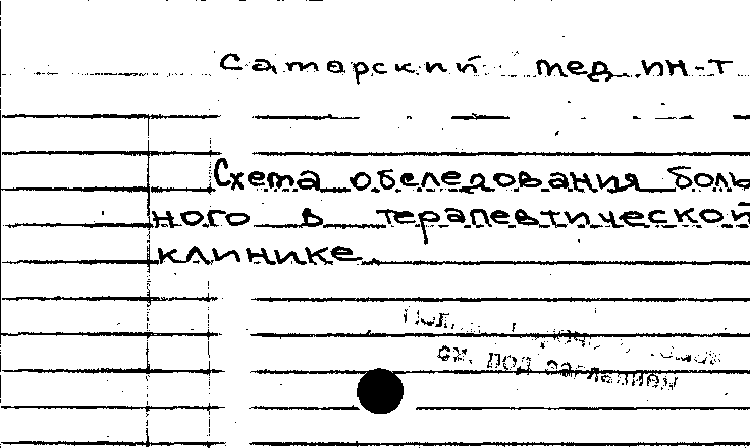 Саторский мед. ин-т
Схема обследования боль
ного в терапевтической
клинике.
см. под заглавием